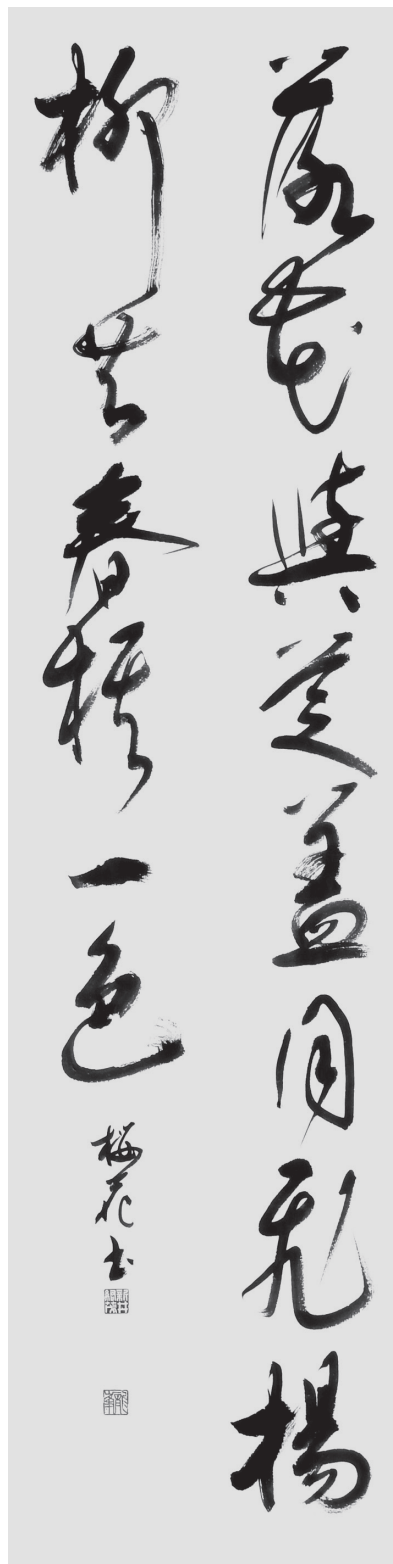 落花與芝蓋同飛楊
柳共春旗一色
梅花書